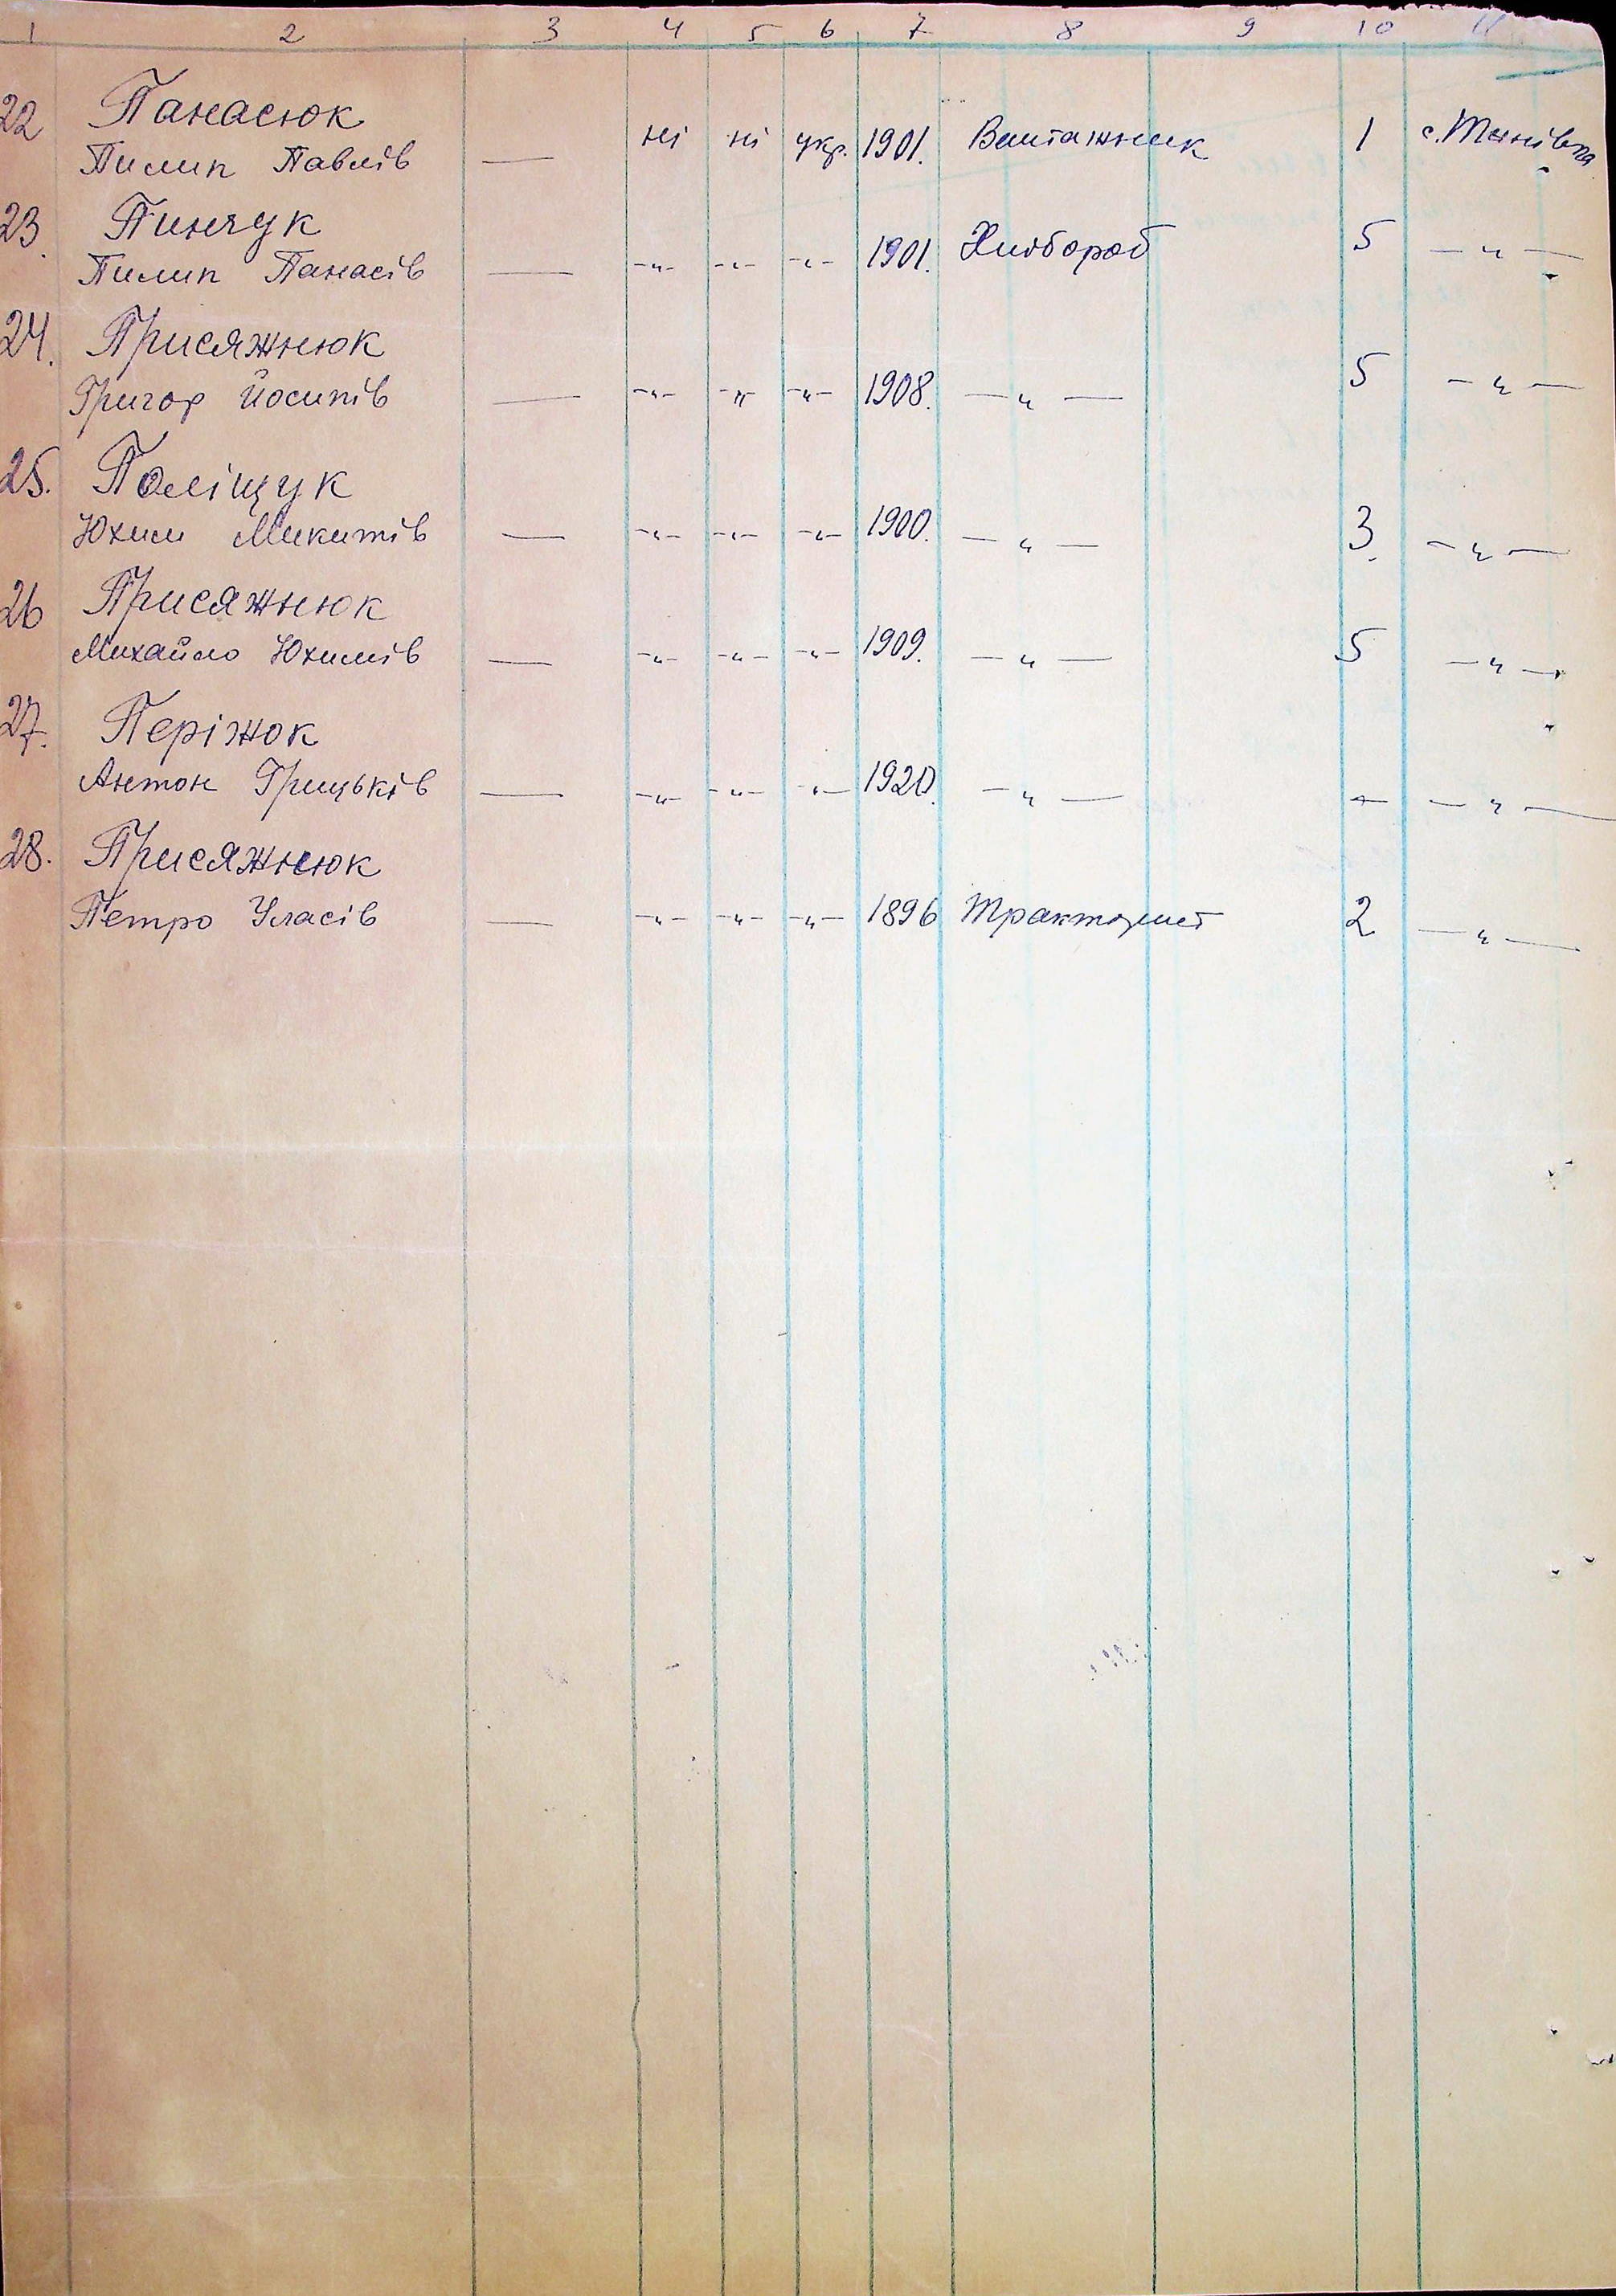 1 2 3 4 5 6 7 8 9 10 11
22 Панасюк
Пилип Павлів — ні ні укр. 1901. Вантажник 1
23. Пинчук
Пилип Панасів — -"- -"- -"- 1901. Хлібороб 5 — " —
24. Присяжнюк
Григор Йосипів — -"- -"- -"- 1908. — " — 5 — " —
25. Поліщук
Юхим Микитів — -"- -"- -"- 1900. — " — 3. — " —
26 Присяжнюк
Михайло Юхимів — -"- -"- -"- 1909. — " — 5 — " —
27. Періжок
Антон Грицьків — -"- -"- -"- 1920. — " — — — " —
28. Присяжнюк
Петро Уласів — -"- -"- -"- 1896 Тракторист 2 — " —